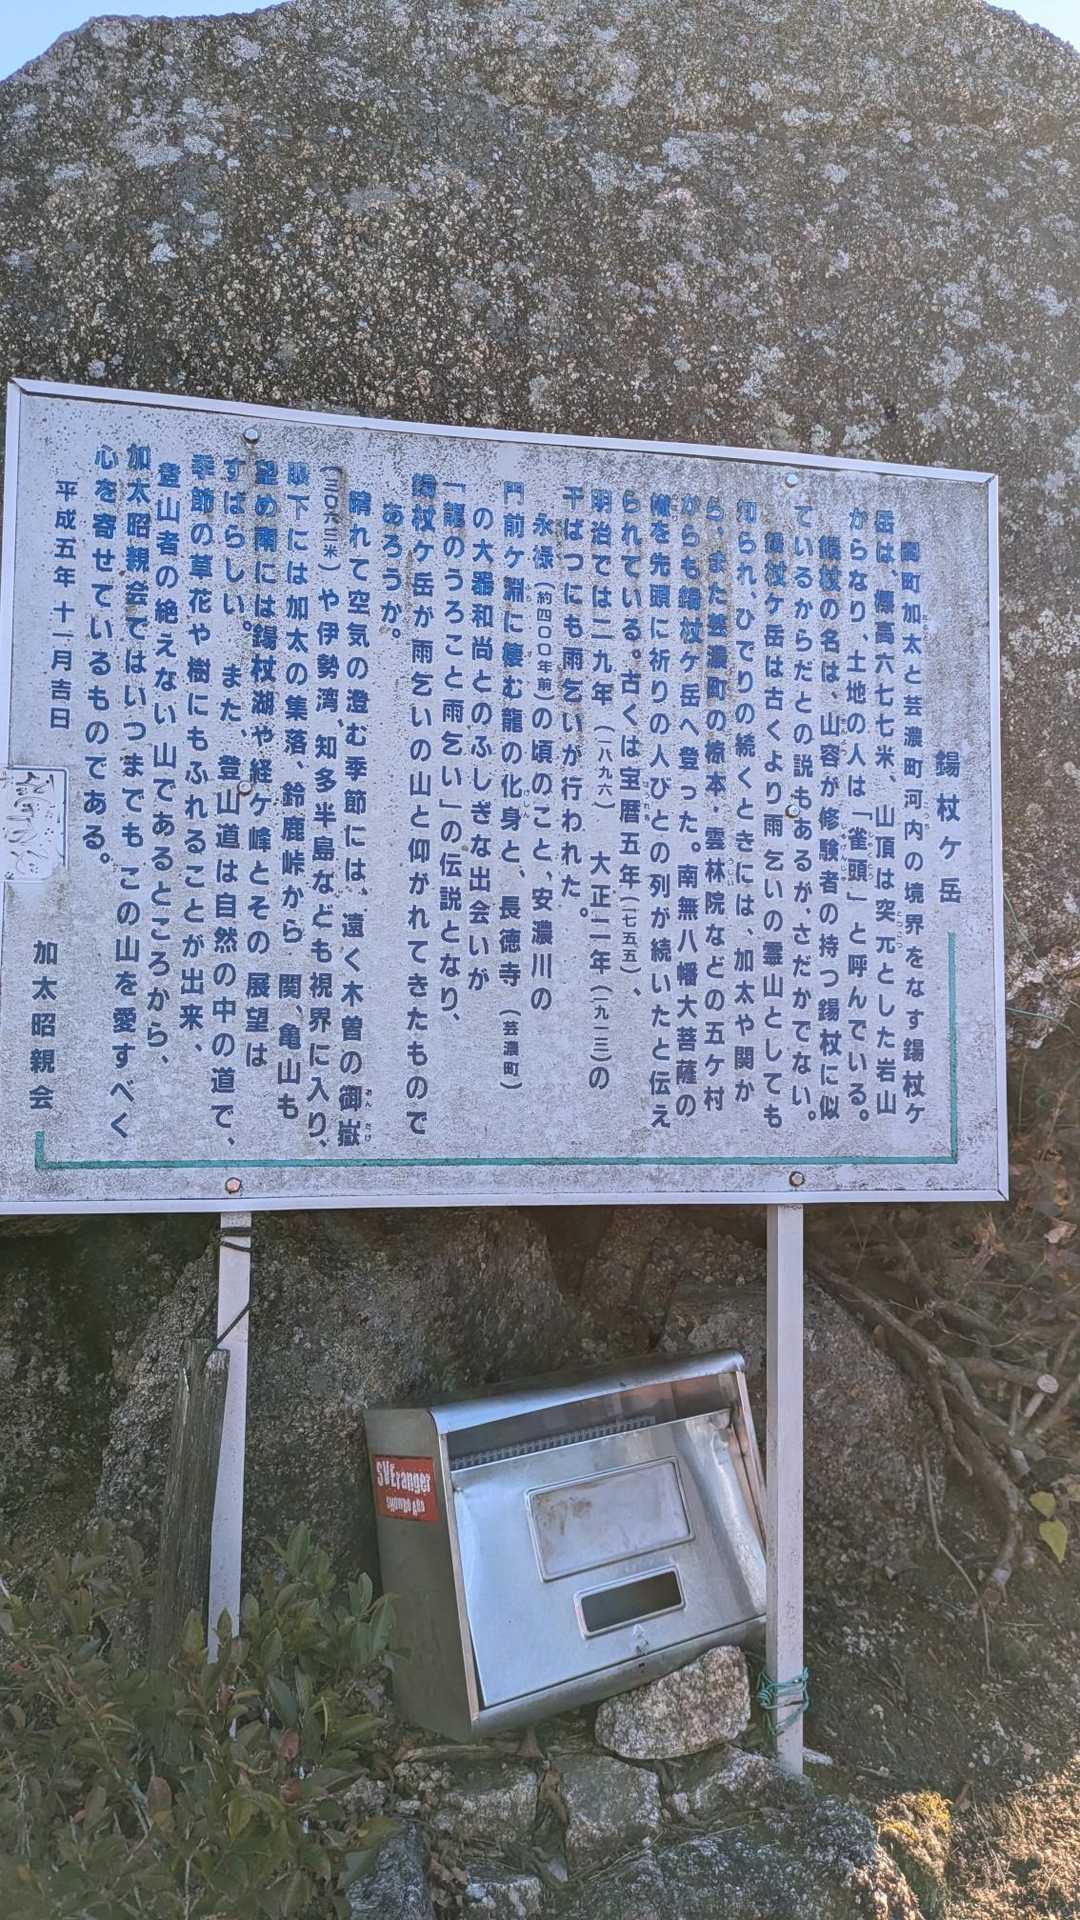 錫杖ヶ岳
関町加太と芸濃町河内の境界をなす錫杖ヶ
岳は、標高六七七米、山頂は突兀とした岩山
からなり、土地の人は「雀頭」と呼んでいる。
錫杖の名は、山容が修験者の持つ錫杖に似
ているからだとの説もあるが、さだかでない。
錫杖ヶ岳は古くより雨乞いの霊山としても
知られ、ひでりの続くときには、加太や関か
ら、また芸濃町の椋本・雲林院などの五ケ村
からも錫杖ヶ岳へ登った。南無八幡大菩薩の
幟を先頭に祈りの人びとの列が続いたと伝え
られている。古くは宝暦五年(一七五五)、
明治では二九年(一八九六) 大正二年(一九一三)の
干ばつにも雨乞いが行われた。
永禄(約四〇〇年前)の頃のこと、安濃川の
門前ケ淵に棲む龍の化身と、長徳寺(芸濃町)
の大器和尚とのふしぎな出会いが
「龍のうろこと雨乞い」の伝説となり、
錫杖ヶ岳が雨乞いの山と仰がれてきたもので
あろうか。
晴れて空気の澄む季節には、遠く木曽の御嶽
(三〇六三米)や伊勢湾、知多半島なども視界に入り、
眼下には加太の集落、鈴鹿峠から 関、亀山も
望め南には錫杖湖や経ケ峰とその 展望は
すばらしい。また、登山道は自然の中の道で、
季節の草花や樹にもふれることが出来、
登山者の絶えない山であるところから、
加太昭親会ではいつまでも この山を愛すべく
心を寄せているものである。
平成五年十一月吉日
加太昭親会
SVEranger